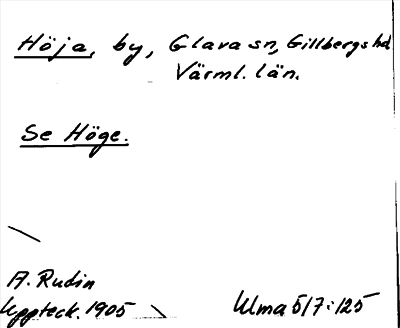 Höja, by, Glava sn, Gillbergs hd
Värml. län.
Se Höge.
A. Rudin
Uppteck. 1905
Ulma 517:125